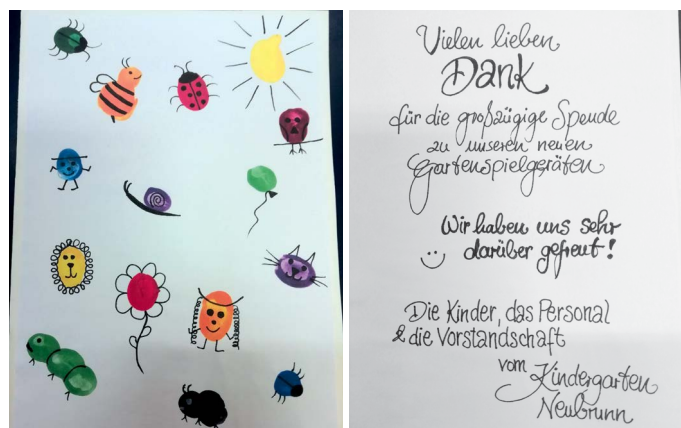 Vielen lieben
Dank
für die großzügige Spende
zu unseren neuen
Gartenspielgeräten
Wir haben uns sehr
darüber gefreut!
Die Kinder, das Personal
& die Vorstandschaft
vom Kindergarten
Neubrunn